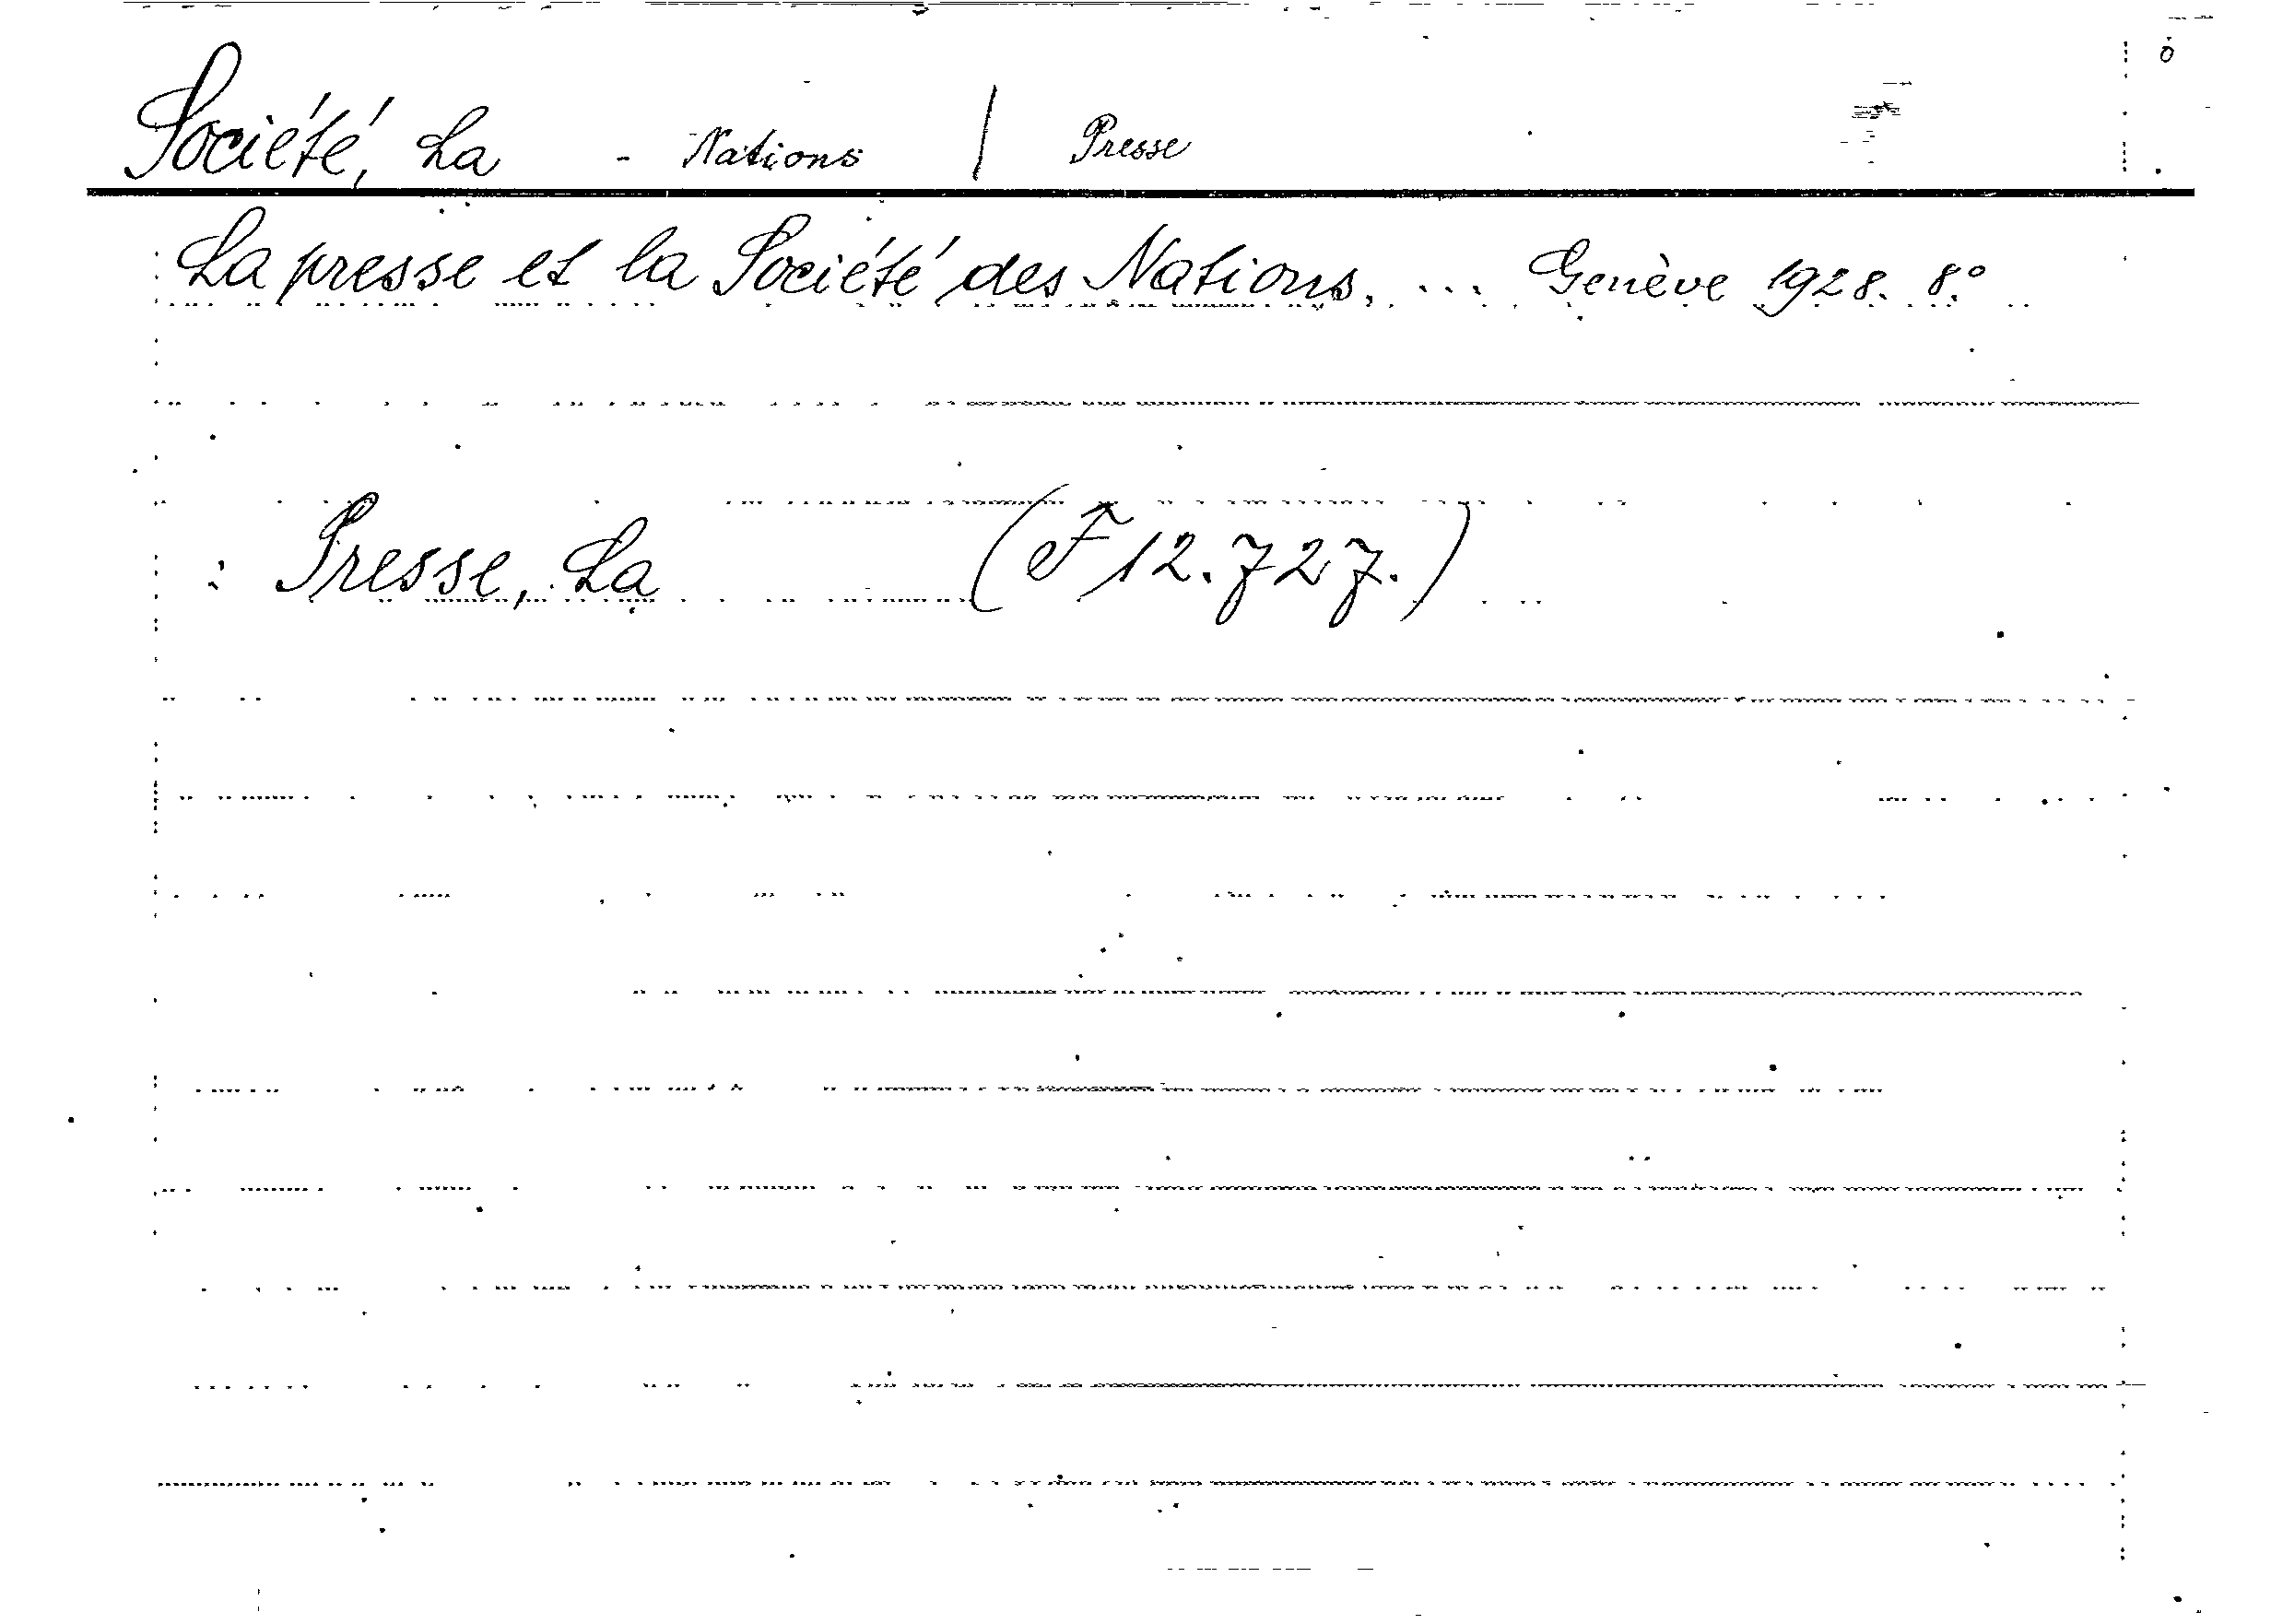 Société, La - Nations / Presse
La presse et la Société des Nations. ... Genève 1928. 8°
: Presse, La (F 12.727.)